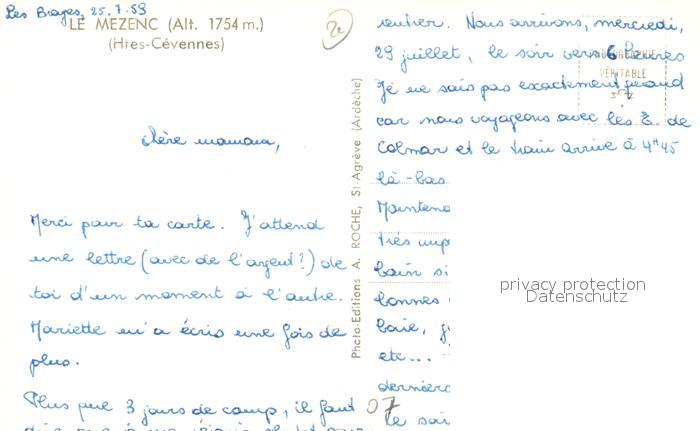 Les Brayes, 25.7.59
LE MEZENC (Alt. 1754 m.)
(Htes-Cévennes)
2e
Chère maman,
Merci pour ta carte. J'attend
une lettre (avec de l'argent?) de
toi d'un moment à l'autre.
Mariette m'a écris une fois de
plus.
Plus que 3 jours de camp, il faut
Photo-Editions A. ROCHE, St-Agrève (Ardèche)
rentrer. Nous arrivons, mercredi,
29 juillet, le soir vers 6 heures
Je ne sais pas exactement quand
car nous voyageons avec les E. de
Colmar et le train arrive à 4H45
là-bas
Maintena
très imp
bain si
bonnes
baie, g
etc...
dernière
le soi
07
VÉRITABLE
privacy protection
Datenschutz